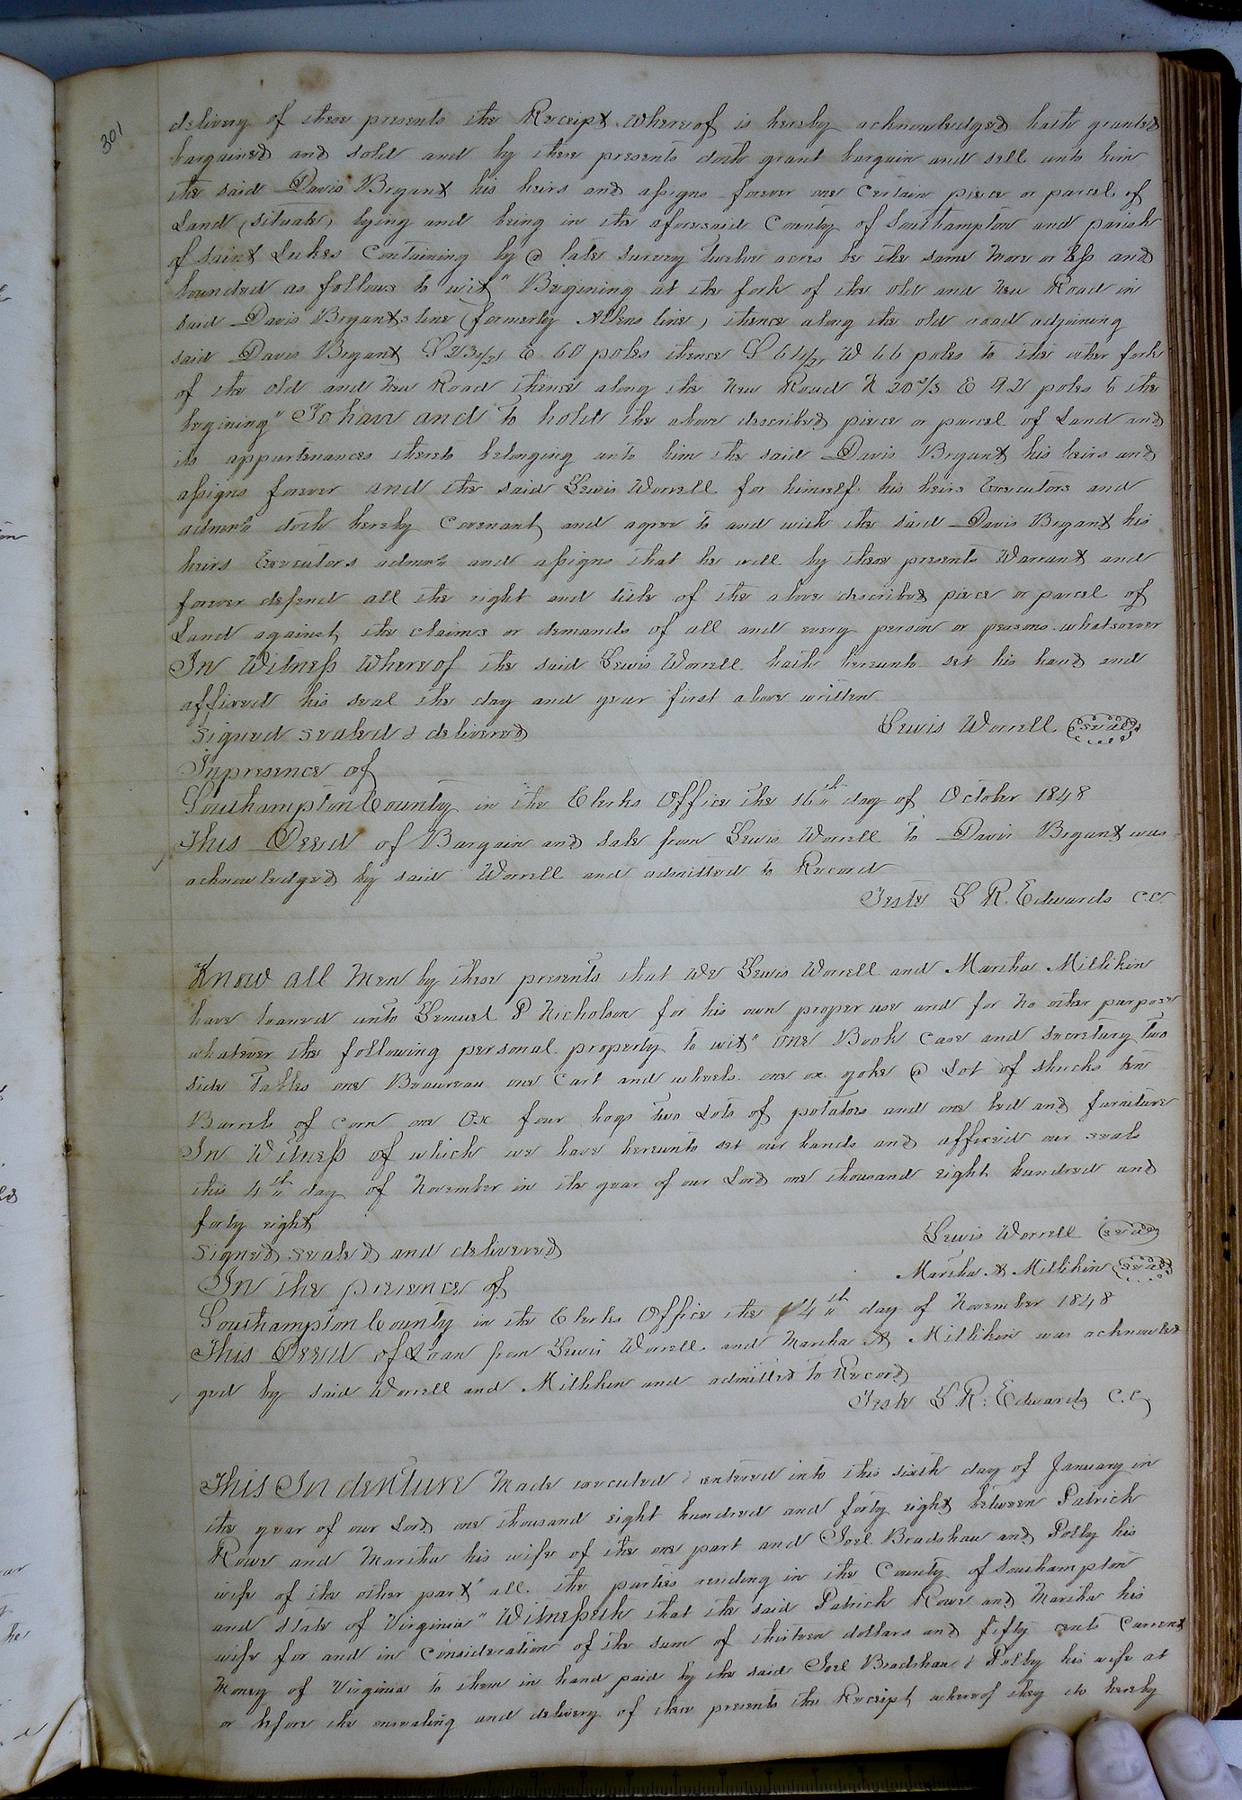 301
delivery of these presents the Receipt whereof is hereby acknowledged hath granted
bargained and sold and by these presents doth grant bargain and sell unto him
the said Davis Bryant his heirs and assigns forever one Certain piece or parcel of
Land (situate) lying and being in the aforesaid County of Southampton and parish
of saint Lukes Containing by a late survey twelve acres be the same more or less and
bounded as follows to wit" Begining at the fork of the old and new Road in
said Davis Bryants line (formerly Allens line) thence along the old road adjoining
said Davis Bryant S 23 1/2 E 60 poles thence S 61 1/2 W 66 poles to the other fork
of the old and new Road thence along the New Road N 20 2/3 E 92 poles to the
begining" To have and to hold the above described piece or parcel of Land and
its appurtenances thereto belonging unto him the said Davis Bryant his heirs and
assigns forever and the said Lewis Worrell for himself his heirs Executors and
admrs doth hereby Covenant and agree to and with the said Davis Bryant his
heirs Executors admrs and assigns that he will by these presents Warrant and
forever defend all the right and title of the above described piece or parcel of
Land against the claims or demands of all and every person or persons whatsoever
In Witness Whereof the said Lewis Worrell hath hereunto set his hand and
affixed his seal the day and year first above written
Signed sealed & delivered Lewis Worrell (seal)
In presence of
Southampton County in the Clerks Office the 16th day of October 1848
This Deed of Bargain and sale from Lewis Worrell to Davis Bryant was
acknowledged by said Worrell and admitted to Record
Teste L R. Edwards C.C.
Know all Men by these presents that We Lewis Worrell and Martha Millikin
have loaned unto Lemuel P Nicholson for his own proper use and for no other purpose
whatever the following personal property to wit" one Book Case and secretary two
side Tables one Beaureau one Cart and wheels one ox yoke a Lot of shucks ten
Barrels of corn one Ox four hogs two Lots of potatoes and one bed and furniture
In Witness of which we have hereunto set our hands and affixed our seals
this 4th day of November in the year of our Lord one thousand eight hundred and
forty eight
Signed sealed and delivered Lewis Worrell (seal)
In the presence of Martha A Millikin (seal)
Southampton County in the Clerks Office the 4th day of November 1848
This Deed of Loan from Lewis Worrell and Martha A Millikin was acknowled
ged by said Worrell and Millikin and admitted to Record
Teste L R. Edwards C.C
This Indenture Made executed & entered into this sixth day of January in
the year of our Lord one thousand eight hundred and forty eight between Patrick
Rowe and Martha his wife of the one part and Joel Bradshaw and Polly his
wife of the other part" all the parties residing in the County of Southampton
and state of Virginia" Witnesseth that the said Patrick Rowe and Martha his
wife for and in Consideration of the sum of thirteen dollars and fifty cents Current
Money of Virginia to them in hand paid by the said Joel Bradshaw & Polly his wife at
or before the ensealing and delivery of these presents the Receipt whereof they do hereby